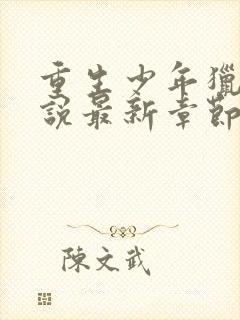 重生少年獵
說最新章節
陳文武